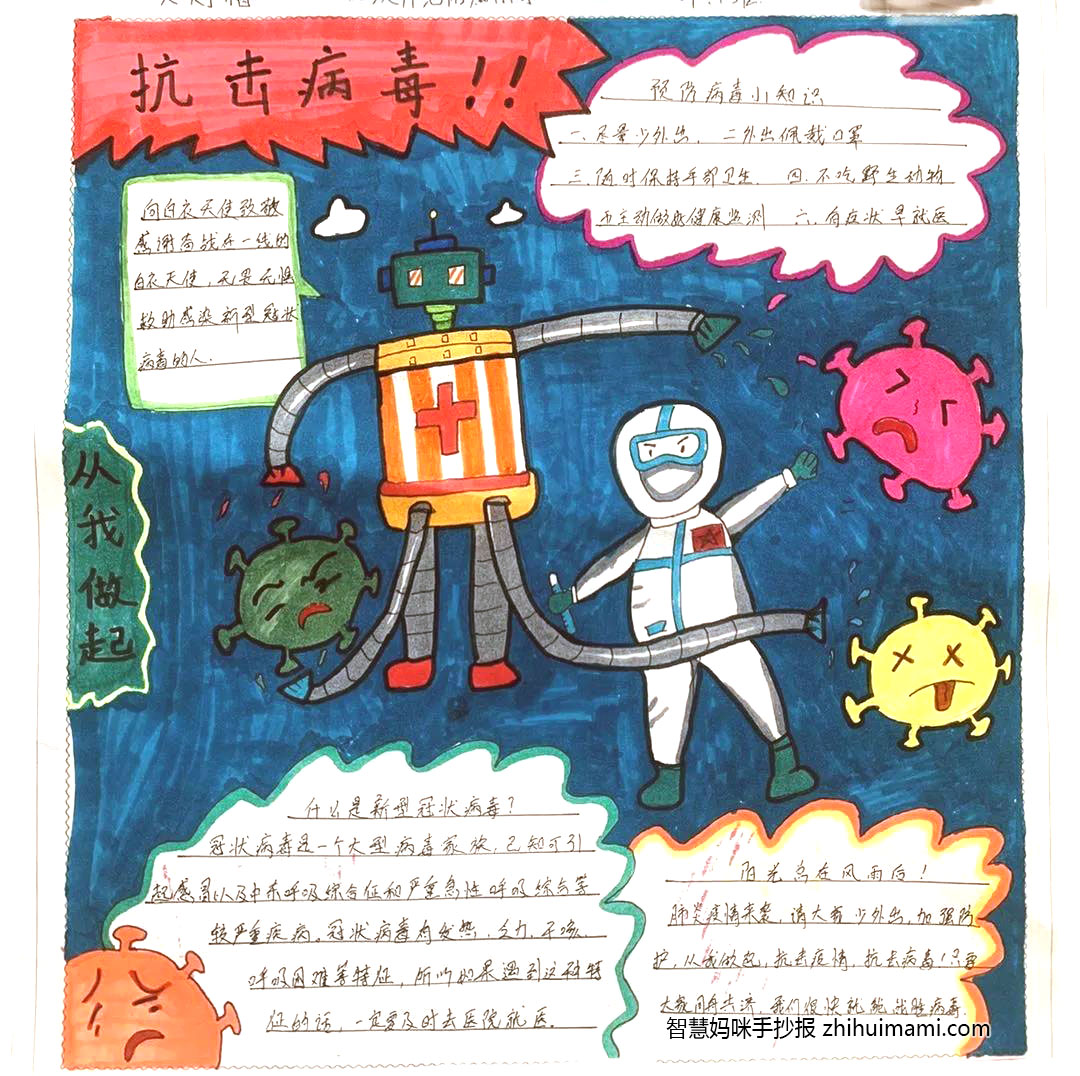 抗击病毒!!
预防病毒小知识
一.尽量少外出. 二外出佩戴口罩
三.随时保持手部卫生. 四.不吃野生动物
五主动做好健康监测 六.有症状早就医
向白衣天使致敬
感谢奋战在一线的
白衣天使，无畏无惧
救助感染新型冠状
病毒的人.
从
我
做
起
什么是新型冠状病毒?
冠状病毒是一个大型病毒家族.已知可引
起感冒以及中东呼吸综合征和严重急性呼吸综合等
较严重疾病。冠状病毒有发热.乏力.干咳.
呼吸困难等特征，所以如果遇到这种特
征的话，一定要及时去医院就医.
阳光总在风雨后!
肺炎疫情来袭，请大有少外出，加强防
护，从我做起，抗击疫情，抗击病毒!只要
大家同舟共济，我们很快就能战胜病毒.
智慧妈咪手抄报 zhihuimami.com